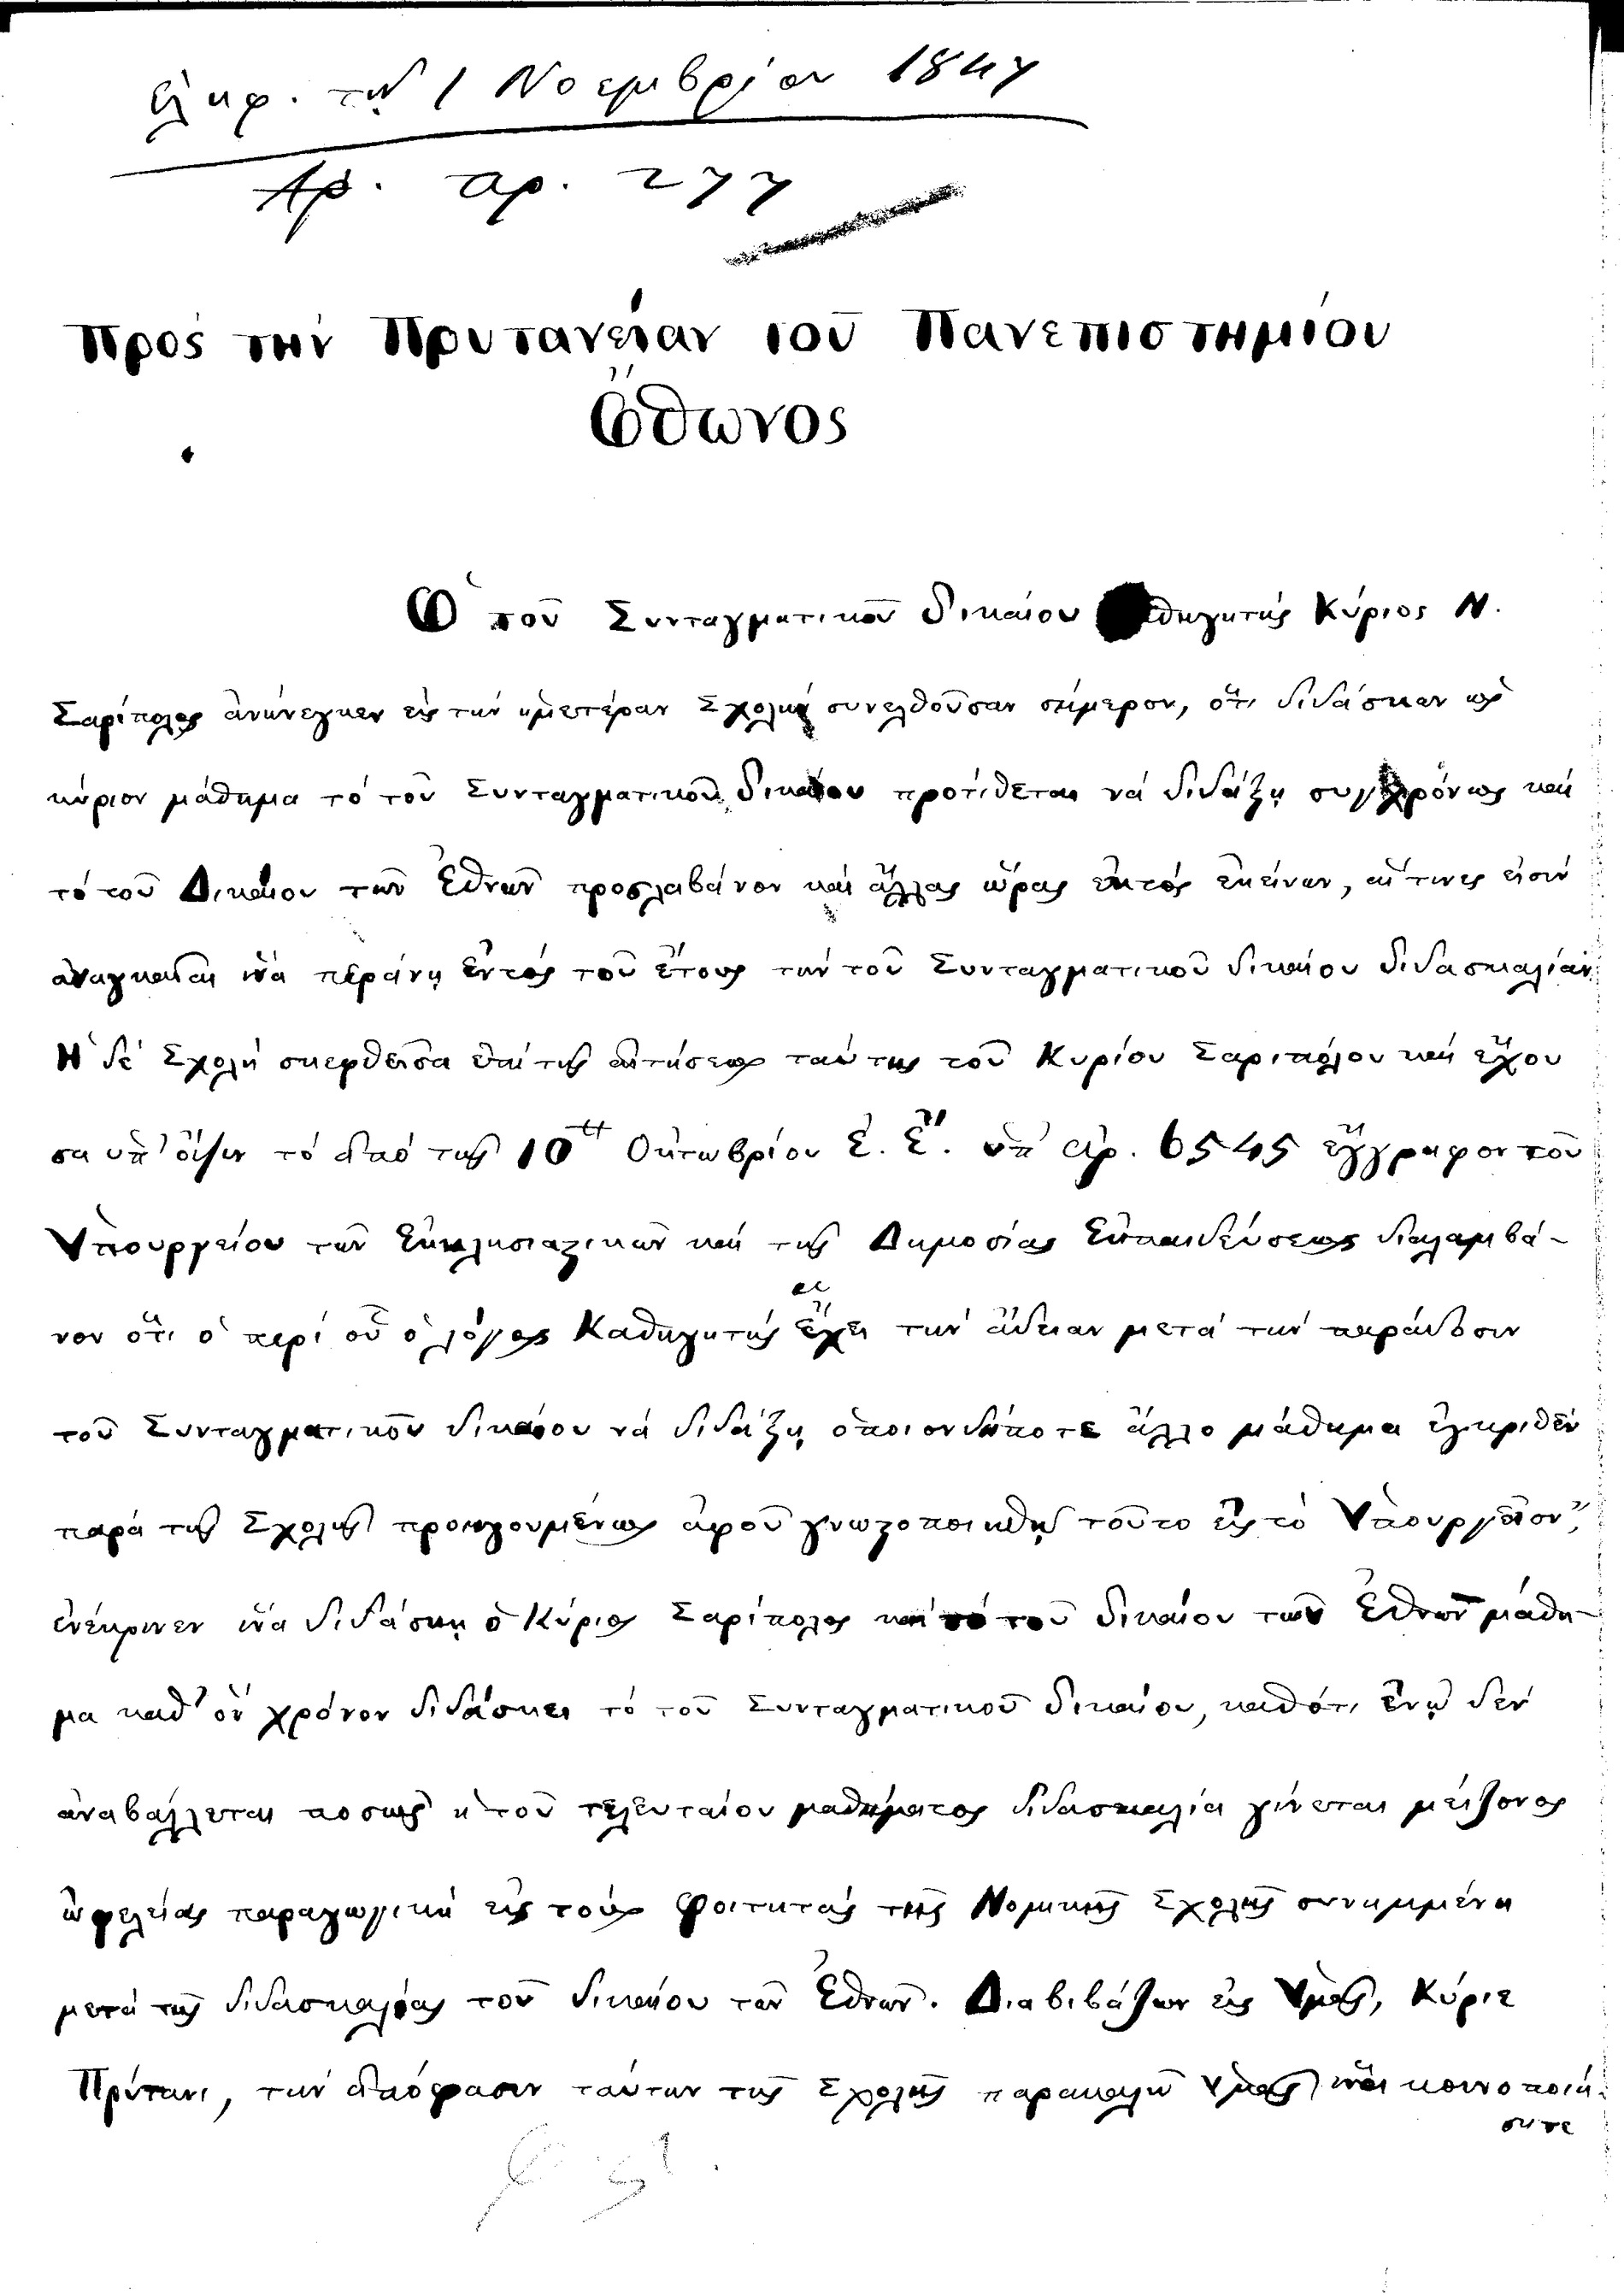 ἐλήφ. τῇ 1 Νοεμβρίου 1847
Ἀρ. πρ. 277
Πρὸς τὴν Πρυτανείαν τοῦ Πανεπιστημίου
Ὄθωνος
Ὁ τοῦ Συνταγματικοῦ δικαίου καθηγητὴς Κύριος Ν.
Σαρίπολος ἀνήνεγκεν εἰς τὴν ἡμετέραν Σχολὴν συνελθοῦσαν σήμερον, ὅτι διδάσκων ὡς
κύριον μάθημα τὸ τοῦ Συνταγματικοῦ δικαίου προτίθεται νὰ διδάξῃ συγχρόνως καὶ
τὸ τοῦ Δικαίου τῶν Ἐθνῶν προσλαβάνον καὶ ἄλλας ὥρας ἐκτὸς ἐκείνων, αἵ τινες εἰσὶν
ἀναγκαῖαι ἵνα περάνῃ ἐντὸς τοῦ ἔτους τὴν τοῦ Συνταγματικοῦ δικαίου διδασκαλίαν.
Ἡ δὲ Σχολὴ σκεφθεῖσα ἐπὶ τῆς αἰτήσεως ταύτης τοῦ Κυρίου Σαριπόλου καὶ ἔχου
σα ὑπ' ὄψιν τὸ ἀπὸ τῆς 10 Ὀκτωβρίου ἐ. ἔ. ὑπ' ἀρ. 6545 ἔγγραφον τοῦ
Ὑπουργείου τῶν Ἐκκλησιαστικῶν καὶ τῆς Δημοσίας Ἐκπαιδεύσεως διαλαμβά-
νον ὅτι ὁ περὶ οὗ ὁ λόγος Καθηγητὴς ἔχει τὴν ἄδειαν μετὰ τὴν παράδοσιν
τοῦ Συνταγματικοῦ δικαίου νὰ διδάξῃ ὁποιονδήποτε ἄλλο μάθημα ἐγκριθὲν
παρὰ τῆς Σχολῆς προηγουμένως ἀφοῦ γνωστοποιηθῇ τοῦτο εἰς τὸ Ὑπουργεῖον,
ἐνέκρινεν ἵνα διδάσκῃ ὁ Κύριος Σαρίπολος καὶ τὸ τοῦ δικαίου τῶν Ἐθνῶν μάθη-
μα καθ' ὃν χρόνον διδάσκει τὸ τοῦ Συνταγματικοῦ δικαίου, καθότι ἐνῷ δὲν
ἀναβάλλεται ποσῶς ἡ τοῦ τελευταίου μαθήματος διδασκαλία γίνεται μείζονος
ὠφελείας παραγωγικὴ εἰς τοὺς Φοιτητὰς τῆς Νομικῆς Σχολῆς συνημμένη
μετὰ τῆς διδασκαλίας τοῦ δικαίου τῶν Ἐθνῶν. Διαβιβάζων εἰς Ὑμᾶς, Κύριε
Πρύτανι, τὴν ἀπόφασιν ταύτην τῆς Σχολῆς παρακαλῶ Ὑμᾶς ἵνα κοινοποιή-
σητε